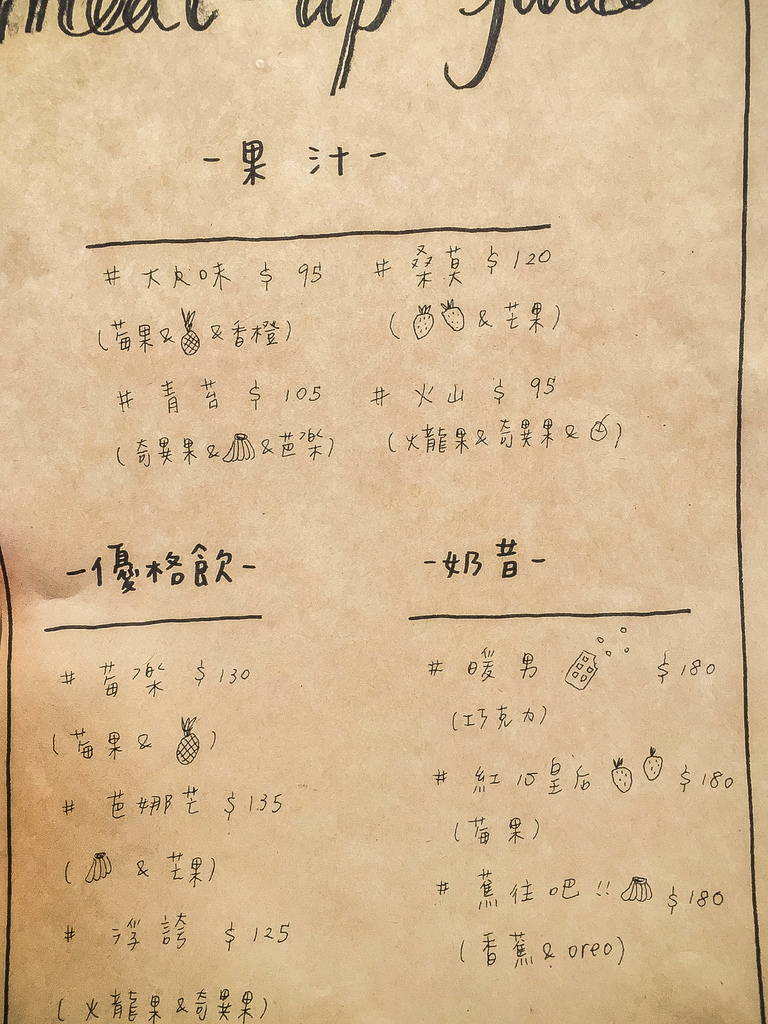 meat up
-果汁-
# 大人口味 $ 95
(莓果& &香橙)
# 青苔 $ 105
(奇異果& &芭樂)
# 桑莫 $ 120
( & 芒果)
# 火山 $ 95
(火龍果&奇異果& )
-優格飲-
# 莓樂 $ 130
(莓果& )
# 芭娜芒 $ 135
( & 芒果)
# 浮誇 $ 125
(火龍果&奇異果)
-奶昔-
# 暖男 $ 180
(巧克力)
# 紅心皇后 $ 180
(莓果)
# 蕉往吧!! $ 180
(香蕉& oreo)